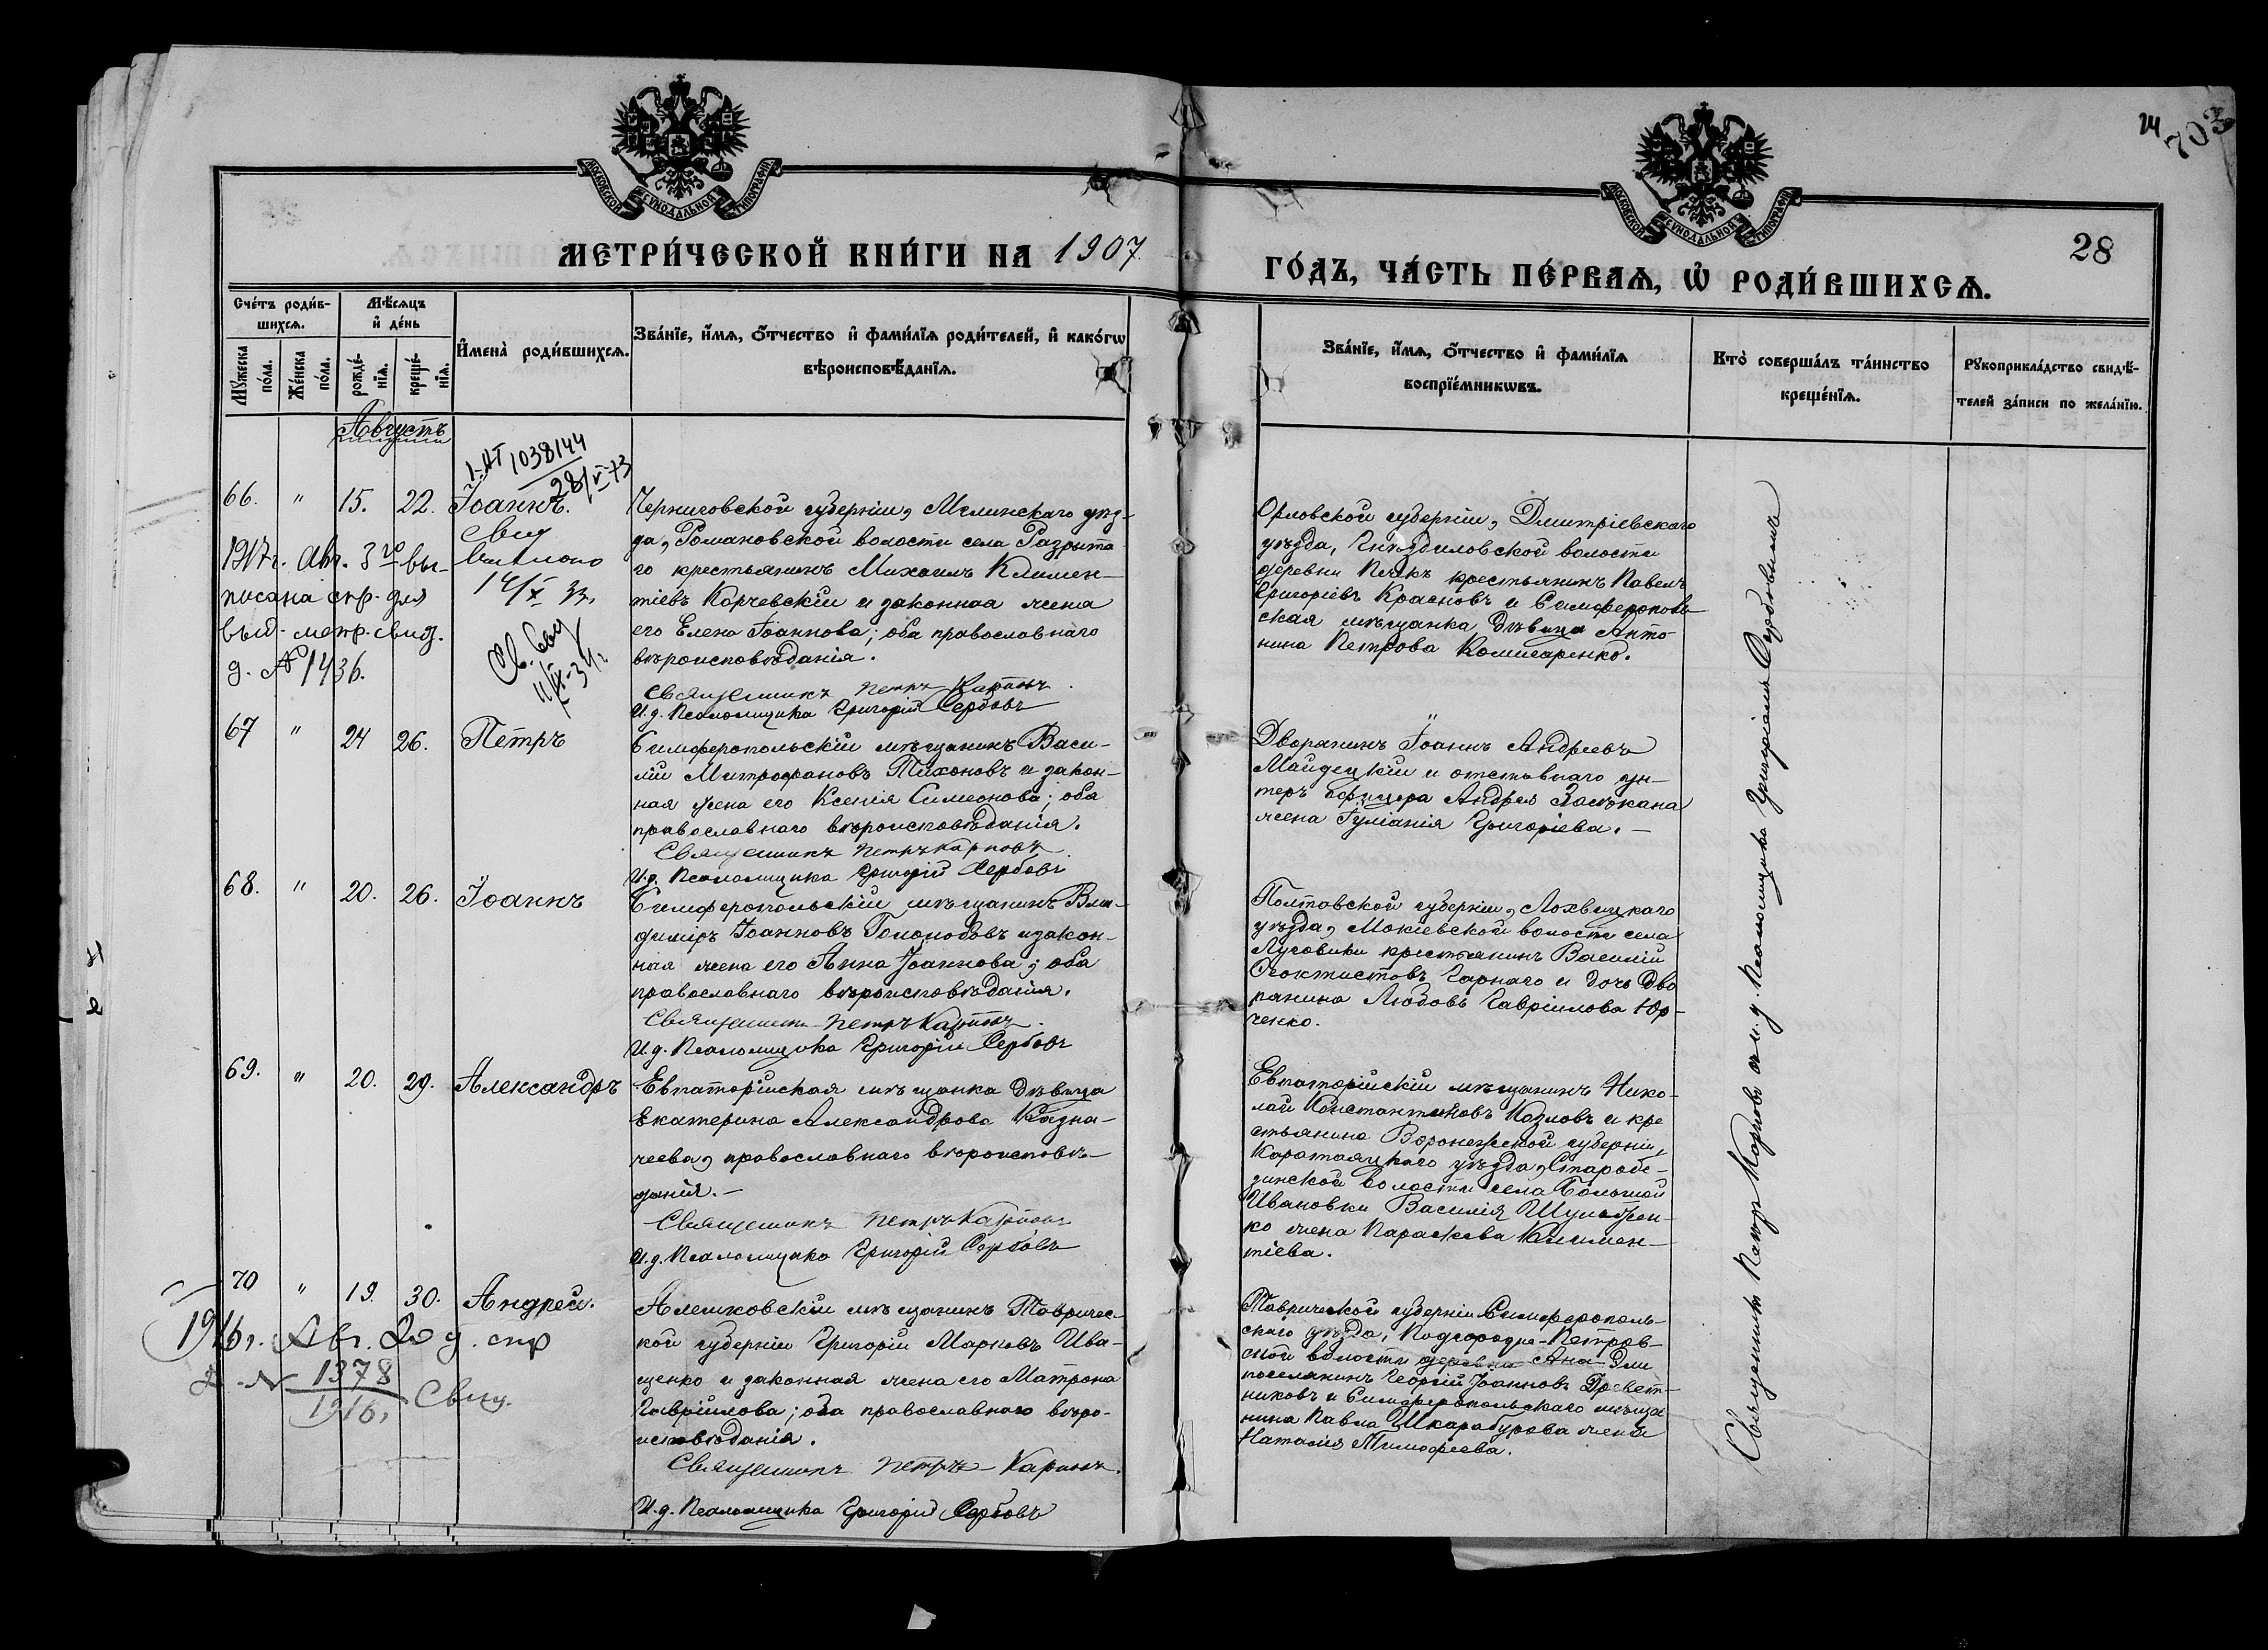 24
703
МОСКОВСКОЙ СѴНОДАЛЬНОЙ ТИПОГРАФІИ
МОСКОВСКОЙ СѴНОДАЛЬНОЙ ТИПОГРАФІИ
МЕТРИ́ЧЕСКОЙ КНИ́ГИ НА 1907
ГО́ДЪ, ЧА́СТЬ ПЕ́РВАѦ, Ѽ РОДИ́ВШИХСѦ.
28
Сче́тъ роди́в-
шихсѧ.
Мѣ́сяцъ
и҆ де́нь
Мꙋ́жеска
по́ла.
Же́нска
по́ла.
рожде́-
нїѧ.
креще́-
нїѧ.
И҆мена̀ роди́вшихсѧ.
Зва́нїе, и҆́мѧ, ѻ҆́тчество и҆ фами́лїѧ роди́телей, и҆ како́гѡ
вѣроисповѣ́данїѧ.
Зва́нїе, и҆́мѧ, ѻ҆́тчество и҆ фами́лїѧ
воспрїе́мникѡвъ.
Кто̀ соверша́лъ та́инство
креще́нїѧ.
Рꙋкоприкла́дство свидѣ́-
телей за́писи по жела́нїю.
Августъ
1038144
28/VI-73
66. " 15. 22. Іоаннъ.
Черниговской губерніи, Мглинскаго уѣз-
да, Романовской волости села Разрыта-
го крестьянинъ Михаилъ Климен-
тіевъ Корчевскій и законная жена
его Елена Іоаннова; оба православнаго
вѣроисповѣданія.
Священникъ Петръ Карповъ
И.д. Псаломщика Григорій Сербовъ
Орловской губерніи, Дмитріевскаго
уѣзда, Гнѣздиловской волости
деревни крестьянинъ Павелъ
Григорьевъ Красновъ и Симферополь-
ская мѣщанка дѣвица Анто-
нина Петрова Комисаренко.
1917г. Авг. 3го вы-
писана спр. для
выд. метр. свид.
д. № 1436.
Свид
14/X 33.
Св. выд
67 " 24 26. Петръ
Симферопольскій мѣщанинъ Васи-
лій Митрофановъ Тихоновъ и закон-
ная жена его Ксенія Симеонова; оба
православнаго вѣроисповѣданія.
Священникъ Петръ Карповъ
И.д. Псаломщика Григорій Сербовъ
Дворянинъ Іоаннъ Андреевъ
Майдецкій и отставнаго ун-
теръ офицера Андрея
жена Іуліанія Григоріева. —
68. " 20. 26. Іоаннъ
Симферопольскій мѣщанинъ Вла-
диміръ Іоанновъ и закон-
ная жена его Анна Іоаннова; оба
православнаго вѣроисповѣданія.
Священникъ Петръ Карповъ
И.д. Псаломщика Григорій Сербовъ
Полтавской губерніи, Лохвицкаго
уѣзда, Мокіевской волости села
Луговики крестьянинъ Василій
Ѳеоктистовъ Гарнаго и дочь дво-
рянина Любовь Гавріилова Юр-
ченко.
69. " 20. 29. Александръ
Евпаторійская мѣщанка дѣвица
Екатерина Александрова Казна-
чеева, православнаго вѣроисповѣ-
данія. —
Священникъ Петръ Карповъ
И.д. Псаломщика Григорій Сербовъ
Евпаторійскій мѣщанинъ Нико-
лай Константиновъ Козловъ и кре
стьянина Воронежской губерніи,
Коротоякскаго уѣзда,
волости села Большой
Ивановки Василія
ко жена Параскева Климен-
тіева.
70 " 19. 30. Андрей.
Алешковскій мѣщанинъ Тавричес-
кой губерніи Григорій Марковъ Ива-
щенко и законная жена его Матрона
Гавріилова; оба православнаго вѣро-
исповѣданія.
Священникъ Петръ Карповъ.
И.д. Псаломщика Григорій Сербовъ
Таврической губерніи Симферополь-
скаго уѣзда, Подгородне-Петров-
ской волости деревни Ана-Эли
поселянинъ Георгій Іоанновъ
никовъ и Симферопольскаго мѣща
нина Павла Шкарабурова жена
Наталія Тимофеева.
1916г. Авг. 20 д. спр
№ 1378
1916, Свид.
Священникъ Петръ Карповъ и и.д. Псаломщика Григоріемъ Сербовымъ